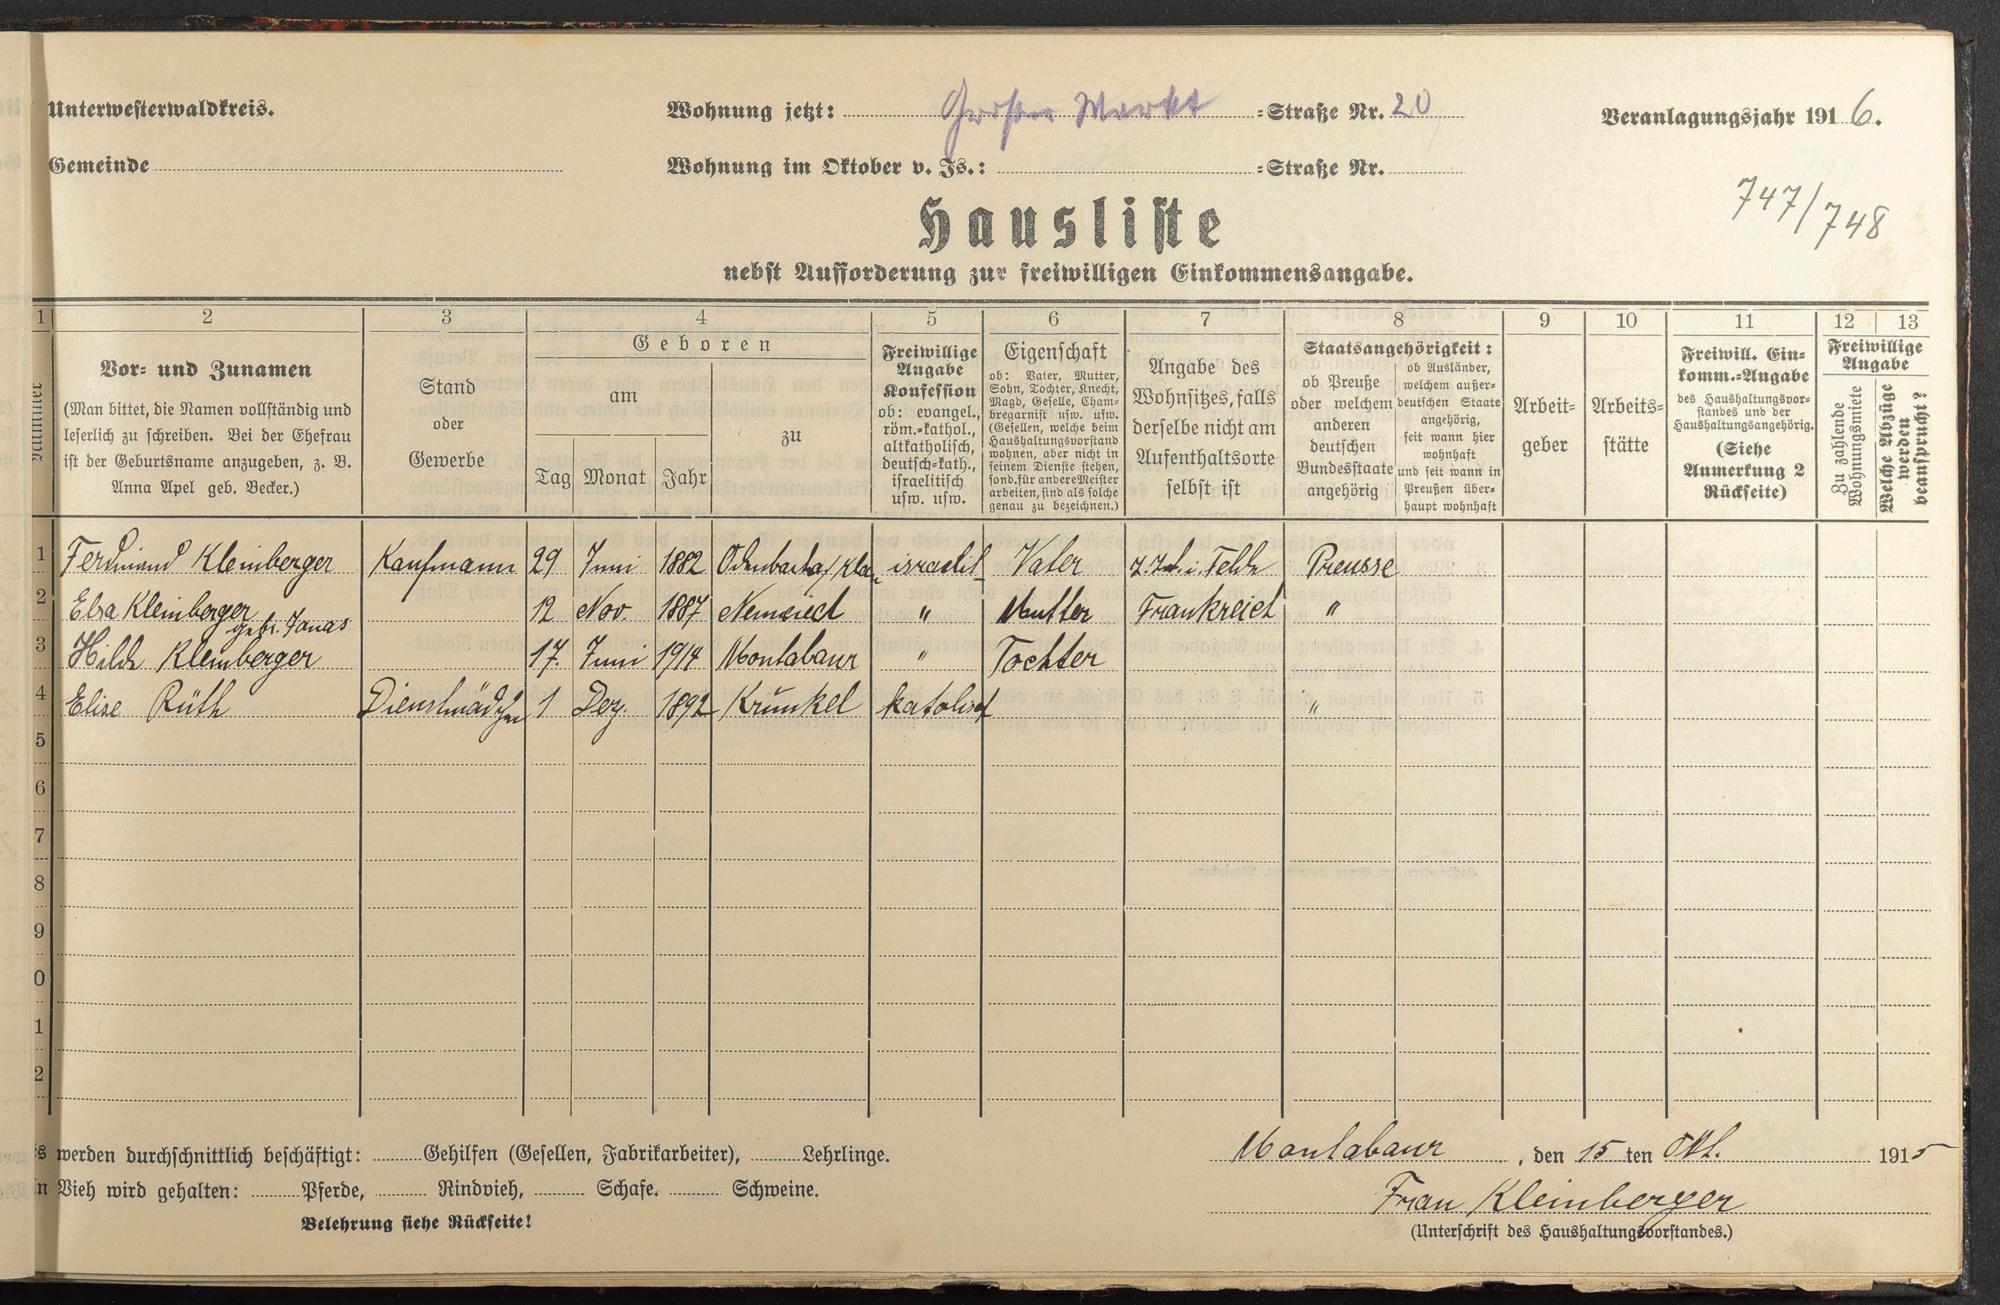 Unterwesterwaldkreis.
Wohnung jetzt: Großer Markt =Straße Nr. 20
Veranlagungsjahr 1916.
Gemeinde
Wohnung im Oktober v. Js.: =Straße Nr.
747/748
Hausliste
nebst Aufforderung zur freiwilligen Einkommensangabe.
1 2 3 4 5 6 7 8 9 10 11 12 13
Nummer
Vor- und Zunamen
(Man bittet, die Namen vollständig und
leserlich zu schreiben. Bei der Ehefrau
ist der Geburtsname anzugeben, z. B.
Anna Apel geb. Becker.)
Stand
oder
Gewerbe
Geboren
am
Tag Monat Jahr
zu
Freiwillige
Angabe
Konfession
ob: evangel.,
röm.=kathol.,
altkatholisch,
deutsch=kath.,
israelitisch
usw. usw.
Eigenschaft
ob: Vater, Mutter,
Sohn, Tochter, Knecht,
Magd, Geselle, Cham-
bregarnist usw. usw.
(Gesellen, welche beim
Haushaltungsvorstand
wohnen, aber nicht in
seinem Dienste stehen,
sond. für andere Meister
arbeiten, sind als solche
genau zu bezeichnen.)
Angabe des
Wohnsitzes, falls
derselbe nicht am
Aufenthaltsorte
selbst ist
Staatsangehörigkeit:
ob Preuße
oder welchem
anderen
deutschen
Bundesstaate
angehörig
ob Ausländer,
welchem außer-
deutschen Staate
angehörig,
seit wann hier
wohnhaft
und seit wann in
Preußen über-
haupt wohnhaft
Arbeit-
geber
Arbeits-
stätte
Freiwill. Ein-
komm.=Angabe
des Haushaltungsvor-
standes und der
Haushaltungsangehörig.
(Siehe
Anmerkung 2
Rückseite)
Freiwillige
Angabe
Zu zahlende
Wohnungsmiete
Welche Abzüge
werden
beansprucht?
1 Ferdinand Kleinberger Kaufmann 29 Juni 1882 israelit Vater i. Felde Preusse
2 Elsa Kleinberger 12 Nov. 1887 " Mutter Frankreich "
geb. Jonas
3 Hilde Kleinberger 17. Juni 1914 Montabaur " Tochter
4 Elise Rüth Dienstmädchen 1 Dez. 1892 Krunkel katolisch "
5
6
7
8
9
0
1
2
s werden durchschnittlich beschäftigt: Gehilfen (Gesellen, Fabrikarbeiter), Lehrlinge.
Montabaur, den 15 ten Okt. 1915
n Vieh wird gehalten: Pferde, Rindvieh, Schafe. Schweine.
Frau Kleinberger
Belehrung siehe Rückseite!
(Unterschrift des Haushaltungsvorstandes.)